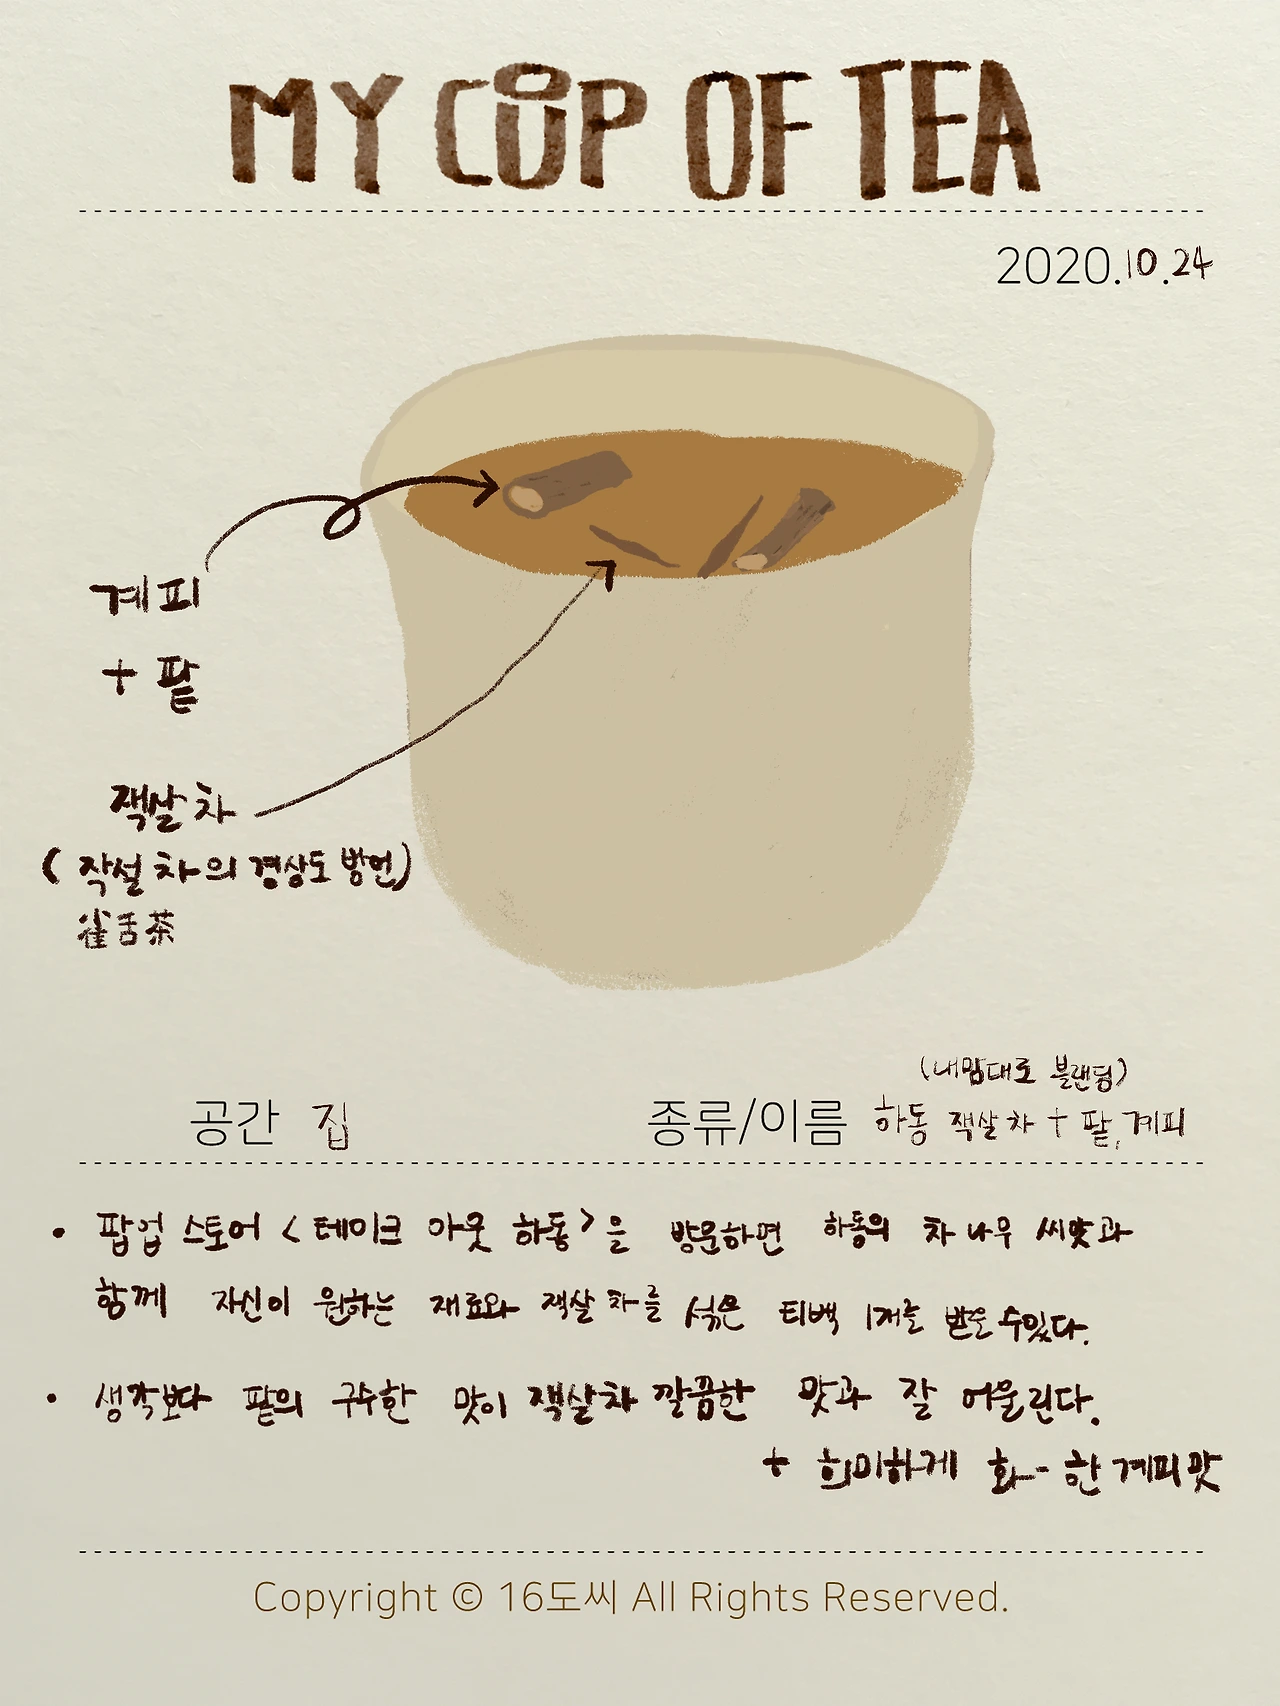 MY CUP OF TEA
2020.10.24
계피
+ 팥
잭살차
(작설차의 경상도 방언)
雀舌茶
(내맘대로 블랜딩)
공간 집 종류/이름 하동 잭살차 + 팥, 계피
• 팝업 스토어 <테이크 아웃 하동>을 방문하면 하동의 차나무 씨앗과
함께 자신이 원하는 재료와 잭살차를 섞은 티백 1개를 받을 수 있다.
• 생각보다 팥의 구수한 맛이 잭살차 깔끔한 맛과 잘 어울린다.
+ 희미하게 화-한 계피맛
Copyright © 16도씨 All Rights Reserved.